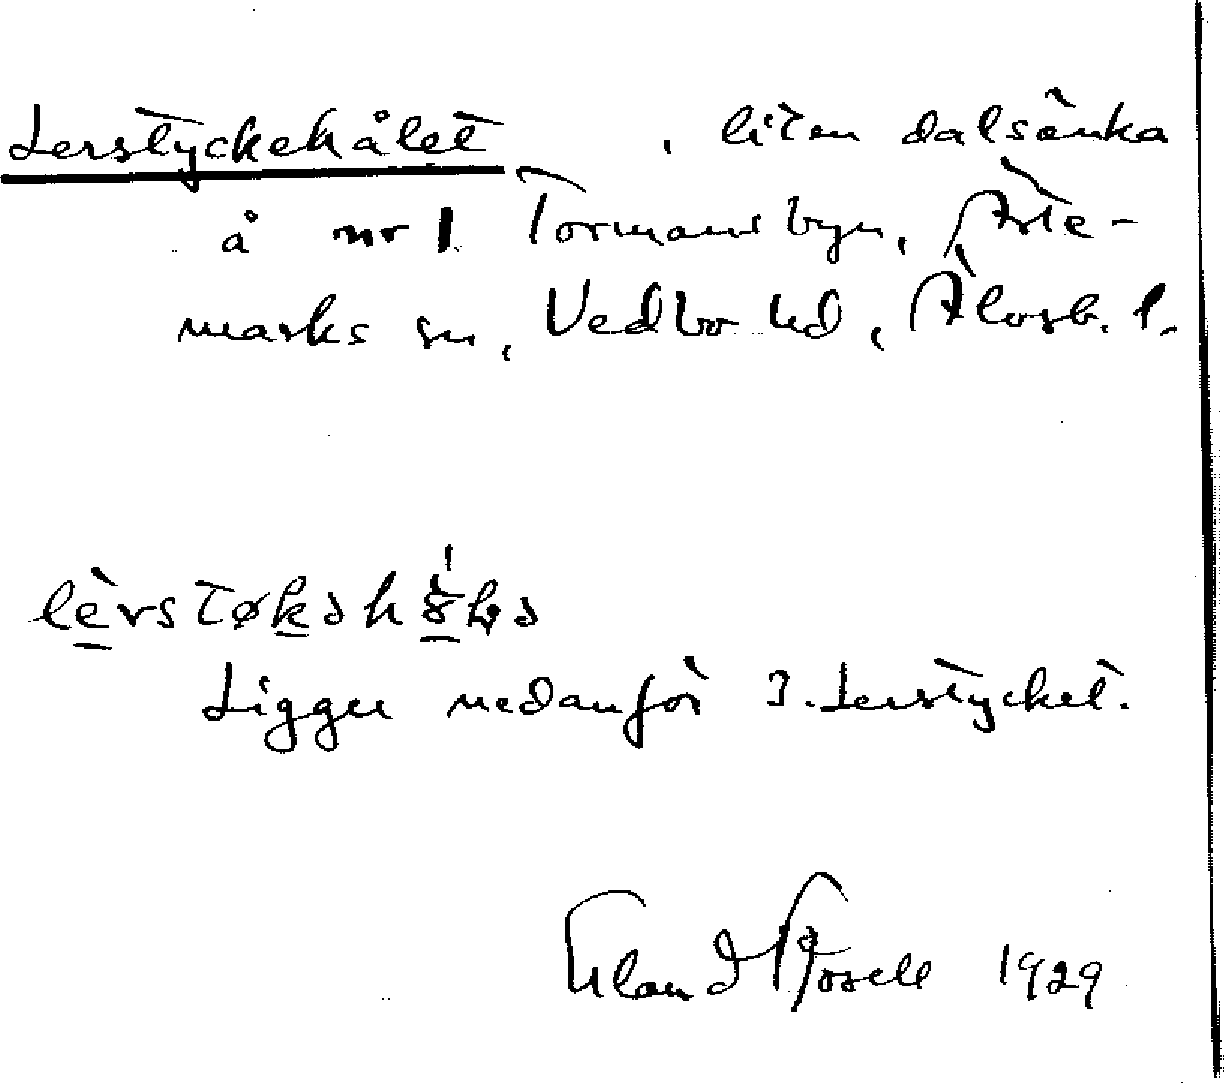 Lerstyckehålet , liten dalsänka
å nr 1 Tormansbyn, Årte-
marks sn, Vedbo hd, Älvsb. l.
Ligger nedanför 3. Lerstycket.
Erland Rosell 1929